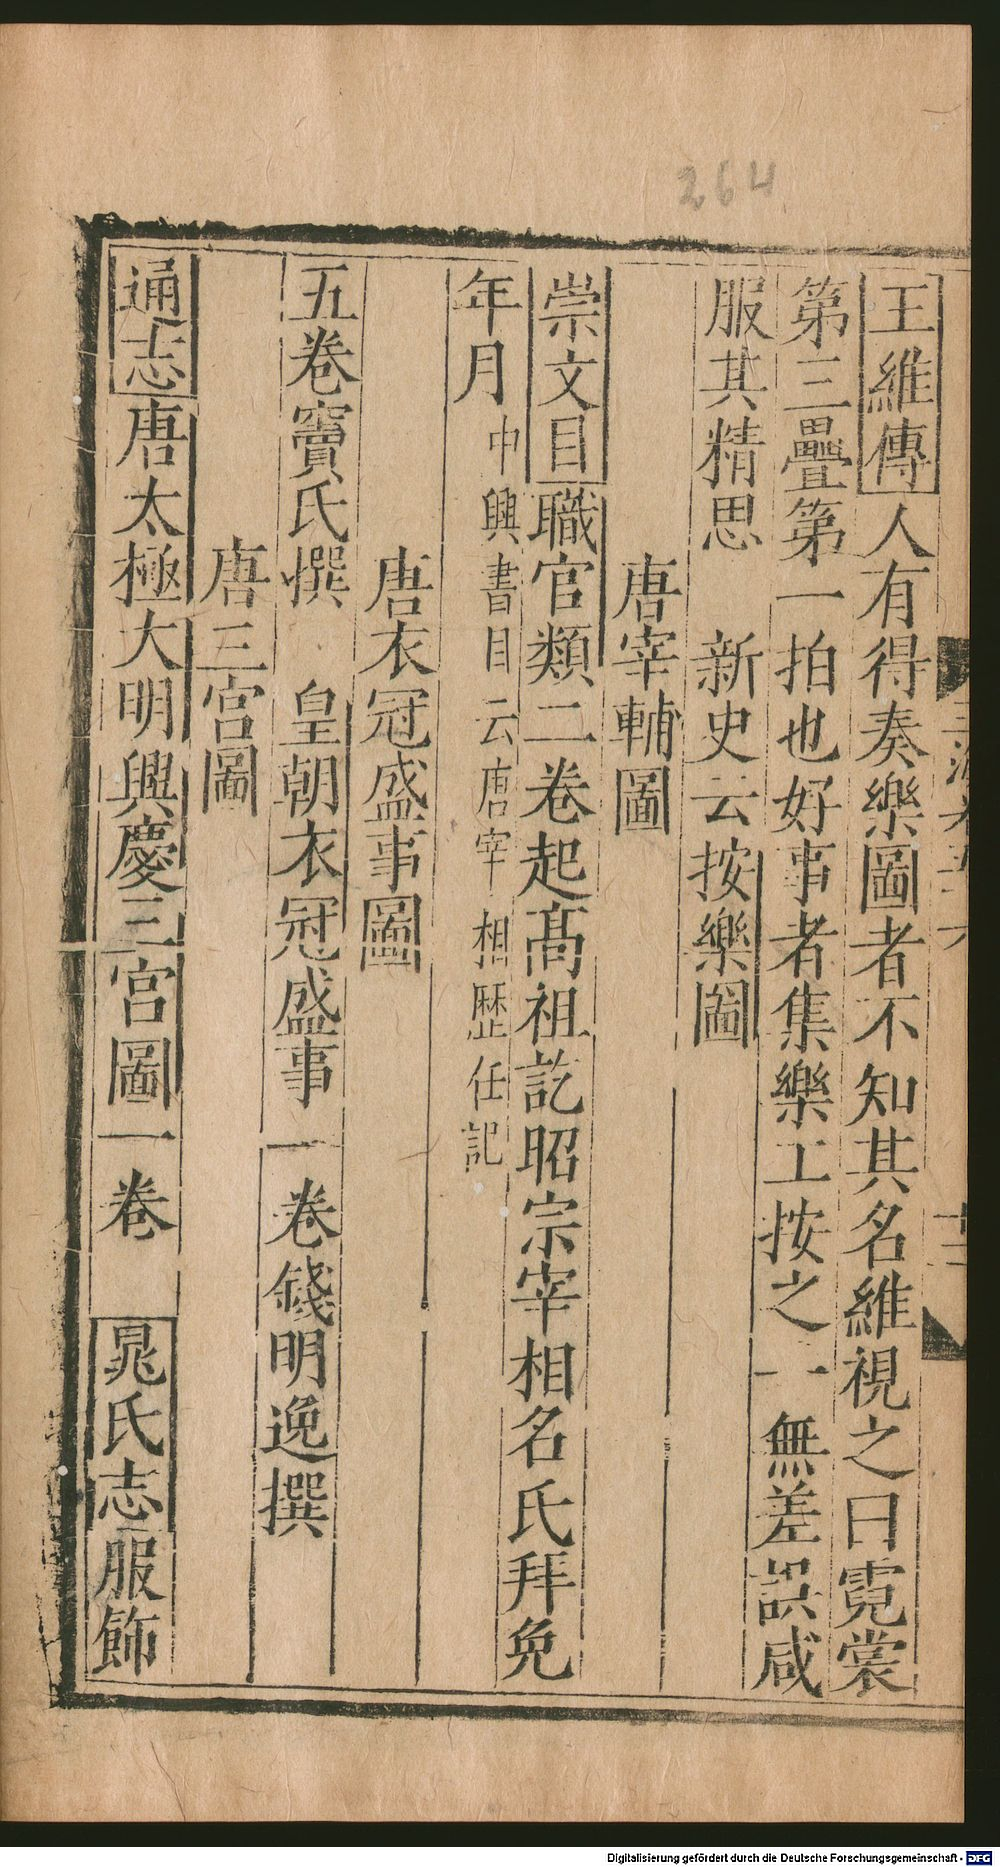 264
王維傳人有得奏樂圖者不知其名維視之曰霓裳
第三疊第一拍也好事者集樂工按之一無差誤咸
服其精思 新史云按樂圖
唐宰輔圖
崇文目職官類二卷起髙祖訖昭宗宰相名氏拜免
年月中興書目云唐宰相歷任記
唐衣冠盛事圖
五卷竇氏撰 皇朝衣冠盛事一卷錢明逸撰
唐三宮圖
通志唐太極大明興慶三宮圖一卷 晁氏志服飾
Digitalisierung gefördert durch die Deutsche Forschungsgemeinschaft - DFG